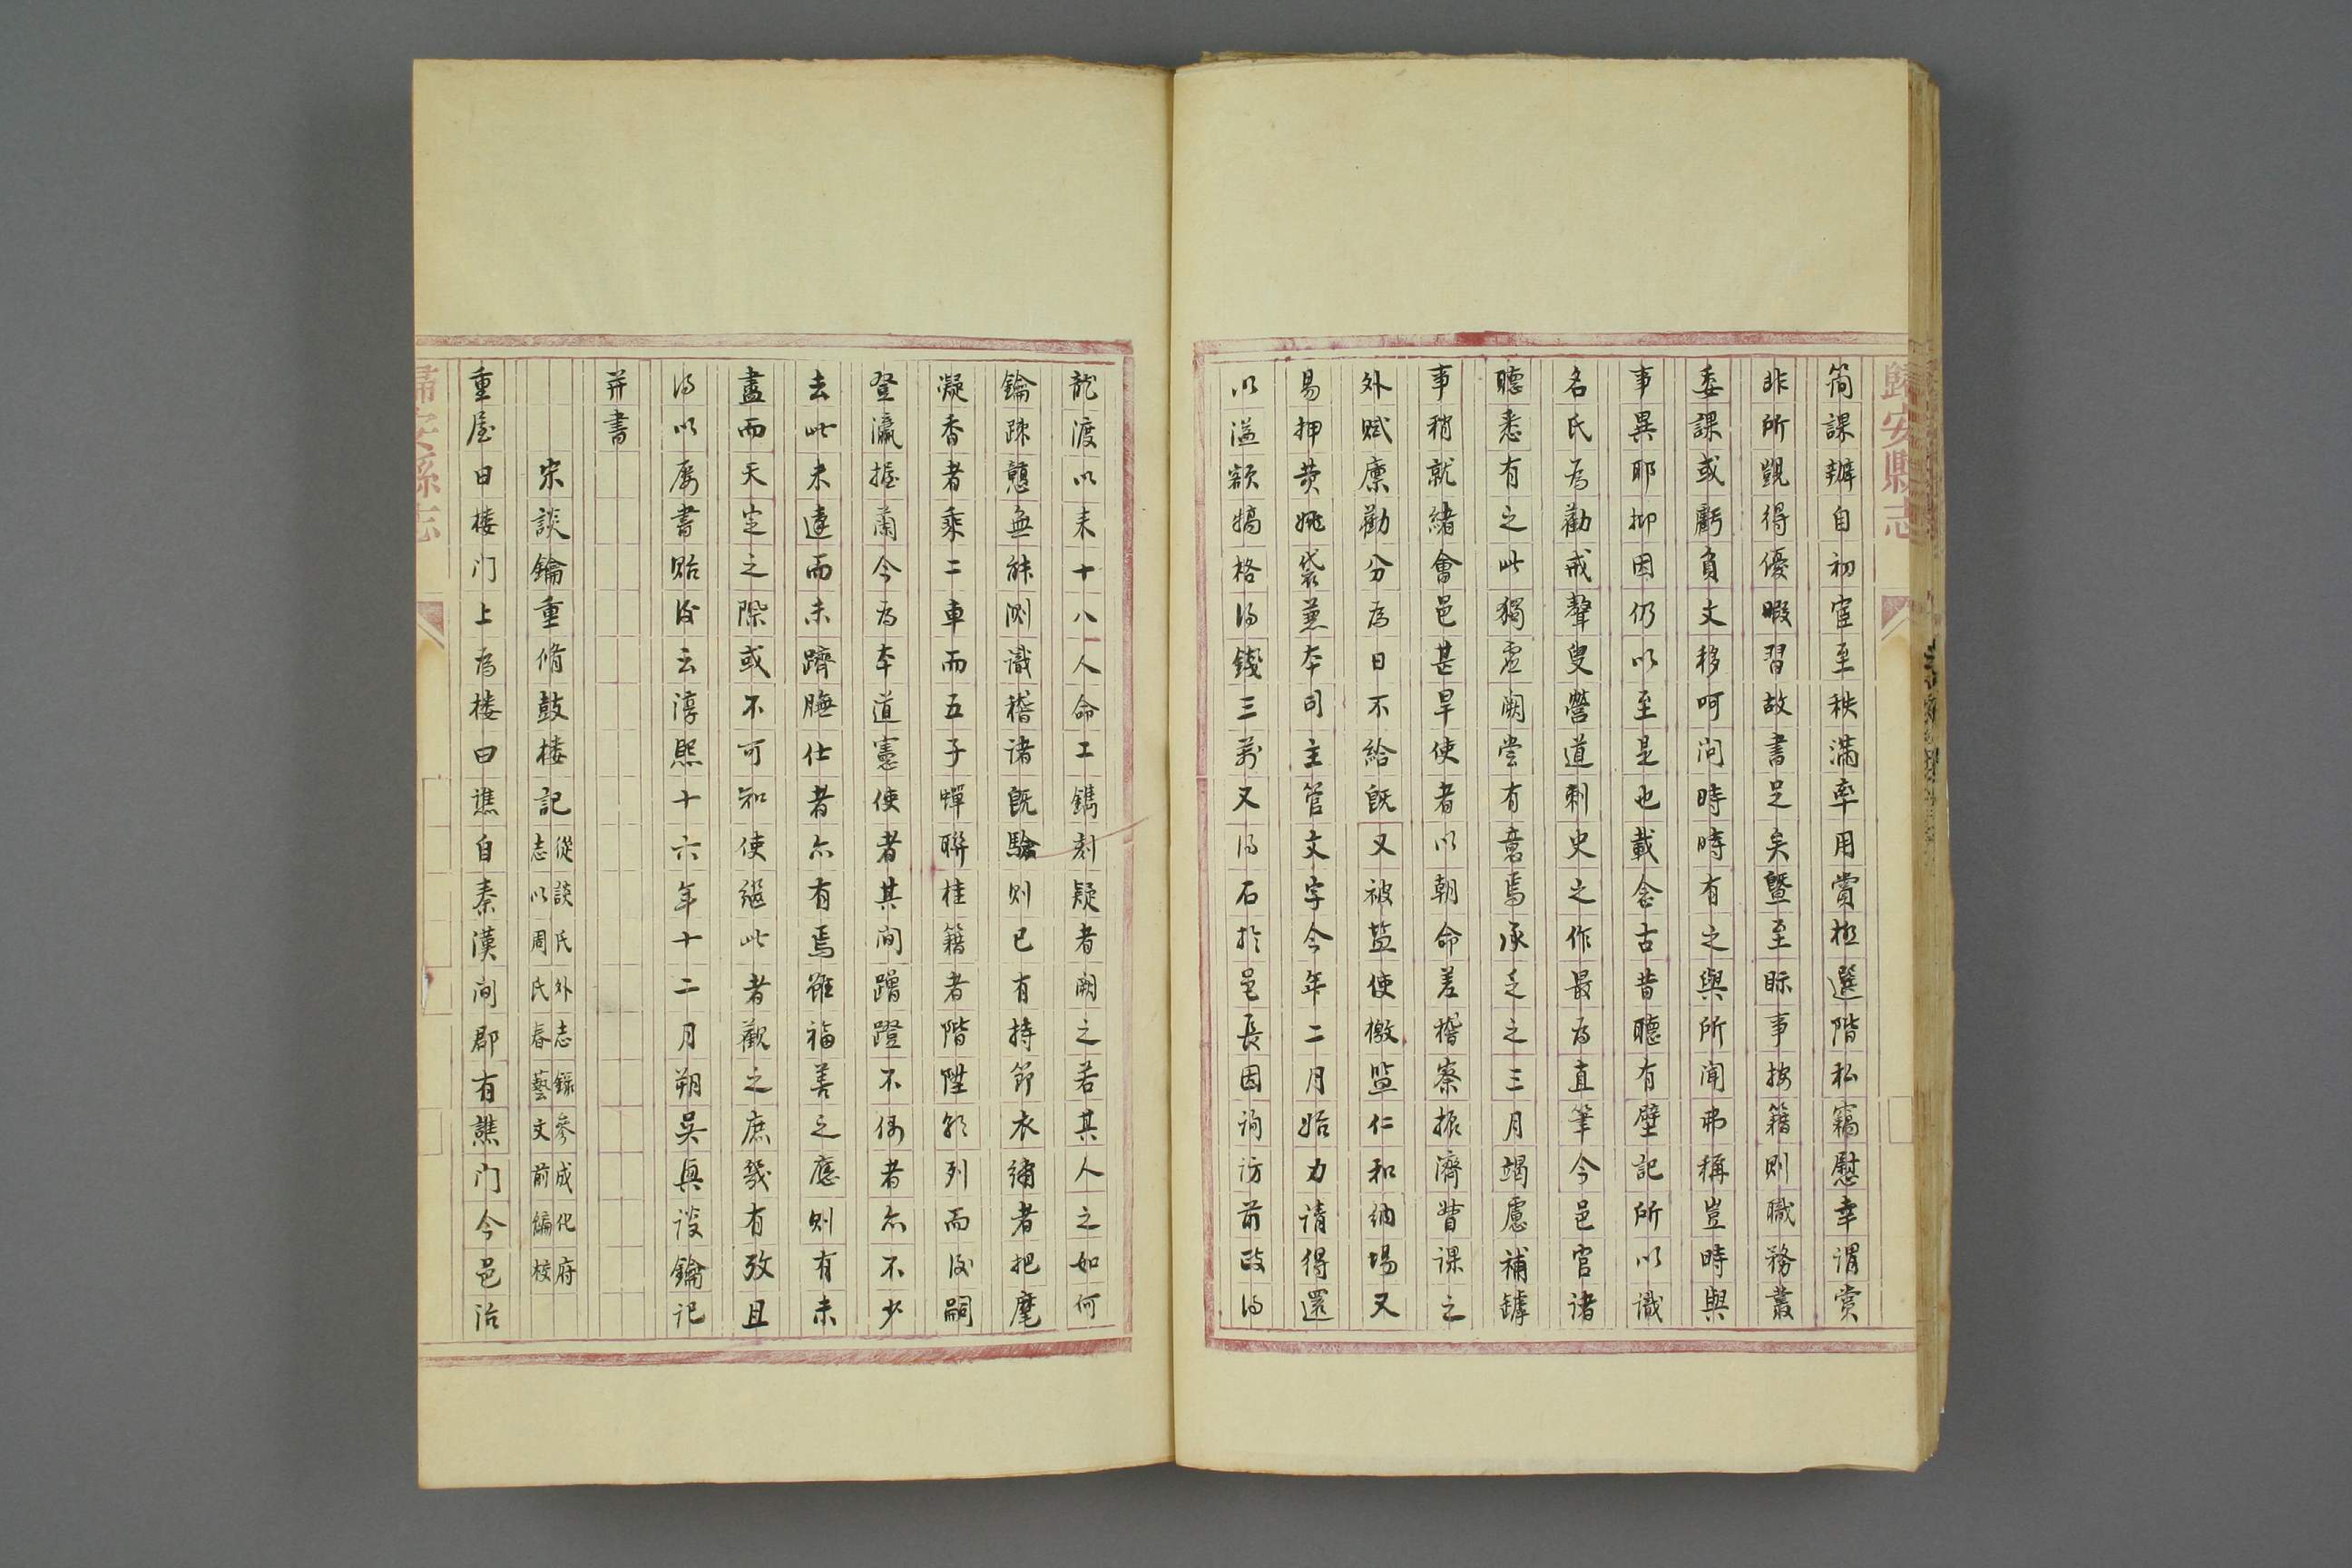 歸安縣志
簡課辦自初宦至秩滿率用賞極選階私竊慰幸謂賞
非所覬得優暇習故書足矣曁至眎事按籍則職務叢
委課或虧負文移呵问時時有之與所闻弗稱豈時與
事異耶抑因仍以至是也載念古昔聽有壁記所以識
名氏为勸戒聱叟營道刺史之作最为直筆今邑官诸
聽悉有之此獨虚闕尝有意焉承乏之三月竭慮補罅
事稍就緒會邑甚旱使者以朝命差稽察振濟嘗课之
外赋廪勸分为日不給旣又被監使檄监仁和纳場又
易押黄姚袋蓝本司主管文字今年二月始力请得還
以溢额犒格得錢三萬又得石扵邑長因询访前政得
龍渡以来十八人命工鐫刻疑者闕之若其人之如何
鑰踈戆無能测識稽诸旣驗则已有持節衣繡者把麾
凝香者乘二車而五子蟬聯桂籍者階陞列而後嗣
登瀛握蘭今为本道憲使者其间蹭蹬不偶者亦不少
去此未遠而未躋膴仕者亦有焉雖福善之應则有未
盡而天定之際或不可知使继此者觀之庶幾有攷且
得以屡書贻後云淳熙十六年十二月朔吳興谈鑰记
并書
宋談鑰重脩鼓楼記從談氏外志錄參成化府志以周氏春藝文前編校
重屋曰楼门上为楼曰譙自秦漢间郡有譙门今邑治
歸安縣志